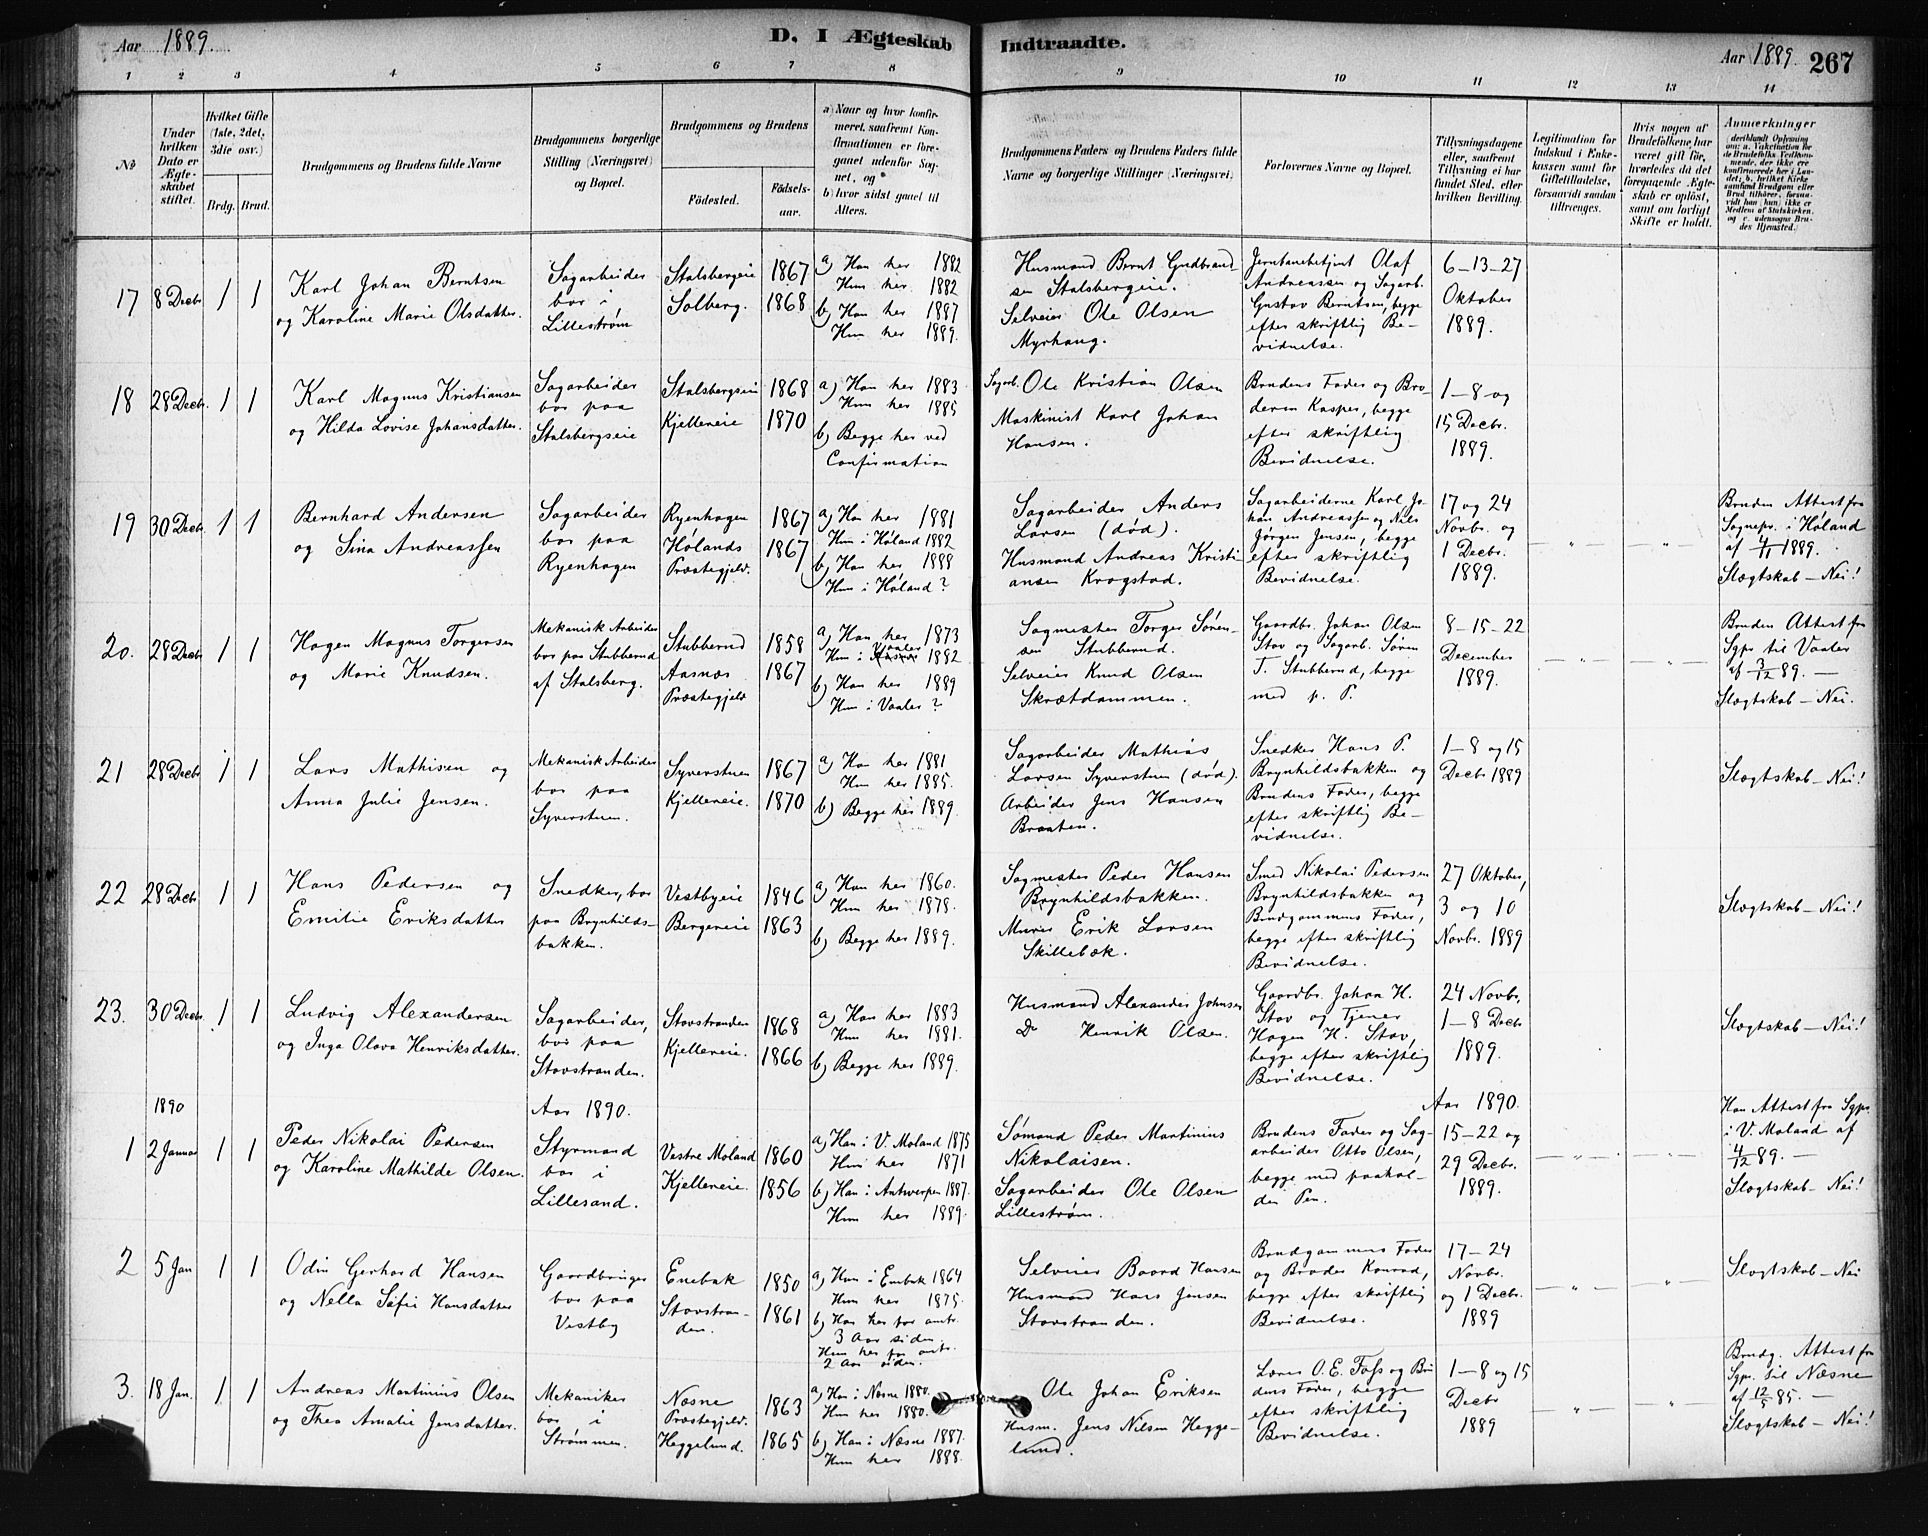 Aar 1889. D. I Ægteskab Indtraadte. Aar 1889. 267
1 2 3 4 5 6 7 8 9 10 11 12 13 14
No
Under hvilken Dato er Ægteskabet stiftet.
Hvilket Gifte (1ste, 2det, 3die osv.)
Brdg. Brud.
Brudgommens og Brudens fulde Navne
Brudgommens borgerlige Stilling (Næringsvei) og Bopæl.
Brudgommens og Brudens
Fødested. Fødselsaar.
a) Naar og hvor konfirmeret, saafremt Konfirmationen er foregaaet udenfor Sognet, og
b) hvor sidst gaaet til Alters.
Brudgommens Faders og Brudens Faders fulde Navne og borgerlige Stillinger (Næringsvei)
Forlovernes Navne og Bopæl.
Tillysningsdagene eller, saafremt Tillysning ei har fundet Sted, efter hvilken Bevilling.
Legitimation for Indskud i Enkekassen samt for Giftetilladelse, forsaavidt saadan tiltrænges.
Hvis nogen af Brudefolkene har været gift før, hvorledes da det foregaaende Ægteskab er opløst, samt om lovligt Skifte er holdt.
Anmærkninger
(deriblandt Oplysning om: a. Vakcination for de Brudefolks Vedkommende, der ikke ere konfirmerede her i Landet; b. hvilket Kirkesamfund Brudgom eller Brud tilhører, forsaavidt han (hun) ikke er Medlem af Statskirken, og c. udensogns Brudes Hjemsted.)
17 8 Decbr 1 1
Karl Johan Berntsen
og Karoline Marie Olsdatter.
Sagarbeider
bor i
Lillestrøm
Stalsbergeie 1867
Solberg. 1868
a) Han her 1882
Hun her 1882
b) Han her 1887
Hun her 1889.
Husmand Bernt Gudbrand-
sen Stalsbergeie.
Selveier Ole Olsen
Myrhaug.
Jernbanebetjent Olaf
Andreassen og Sagarb.
Gustav Berntsen, begge
efter skriftlig Be-
vidnelse.
6-13-27
Oktober
1889.
18 28 Decbr. 1 1
Karl Magnus Kristiansen
og Hilda Lovise Johansdatter.
Sagarbeider
bor paa
Stalsbergseie
Stalsbergseie 1868
Kjellereie 1870
a) Han her 1883
Hun her 1885
b) Begge her ved
Confirmation
Sagarb. Ole Kristian Olsen
Maskinist Karl Johan
Hansen.
Brudens Fader og Bro-
deren Kasper, begge
efter skriftlig
Bevidnelse.
1-8 og
15 Decbr.
1889.
19 30 Decbr. 1 1
Bernhard Andersen
og Sina Andreassen
Sagarbeider
bor paa
Ryenhagen
Ryenhagen 1867
Hølands
Præstegjeld. 1867
a) Han her 1881
Hun i Høland 1882
b) Han her 1888
Hun i Høland?
Sagarbeider Anders
Larsen (død).
Husmand Andreas Kristi-
ansen Krogstad.
Sagarbeiderne Karl Jo-
han Andreassen og Nils
Jørgen Jensen, begge
efter skriftlig
Bevidnelse.
17 og 24
Novbr. og
1 Decbr.
1889.
-"- -"-
Bruden Attest fra
Sognepr. i Høland
af 4/11 1889.
Slægtskab - Nei!
20. 28 Decbr 1 1
Hagen Magnus Torgersen
og Marie Knudsen.
Mekanisk Arbeider
bor paa Stubberud
af Stalsberg.
Stubberud 1858
Aasnæs 1867
Præstegjeld
a) Han her 1873
Hun i Vaaler 1882
b) Han her 1889
Hun i Vaaler?
Sagmester Torger Søren-
sen Stubberud.
Selveier Knud Olsen
Skrætdammen.
Gaardbr. Johan Olsen
Stav og Sagarb. Søren
T. Stubberud, begge
med p. P.
8-15-22
December
1889.
-"- -"-
Bruden Attest fra
Sgpr til Vaaler
af 3/12 89. -
Slægtskab - Nei.
21 28 Decbr 1 1
Lars Mathisen og
Anna Julie Jensen.
Mekanisk Arbeider
bor paa
Syverstuen.
Syverstuen 1867
Kjellereie. 1870
a) Han her 1881
Hun her 1885.
b) Begge her 1889.
Sagarbeider Mathias
Larsen Syverstuen (død).
Arbeider Jens Hansen
Braaten.
Snedker Hans P.
Brynhildsbakken og
Brudens Fader, begge
efter skriftlig Be-
vidnelse.
1-8 og 15
Decbr 1889
Slægtskab - Nei!
22 28 Decbr 1 1
Hans Pedersen og
Emilie Eriksdatter
Snedker, bor
paa Brynhilds-
bakken.
Vestbyeie 1846
Bergereie 1863
a) Han her 1860.
Hun her 1878.
b) Begge her 1889.
Sagmester Peder Hansen
Brynhildsbakken.
Murer Erik Larsen
Skillebæk.
Smed Nikolai Pedersen
Brynhildsbakken og
Brudgommens Fader,
begge efter skriftlig
Bevidnelse.
27 Oktober,
3 og 10
Novbr. 1889
Slægtskab - Nei!
23. 30 Decbr. 1 1
Ludvig Alexandersen
og Inga Olava Henriksdatter.
Sagarbeider,
bor paa
Stovstranden.
Stovstranden 1868
Kjellereie. 1866
a) Han her 1883
Hun her 1881.
b) Begge her 1889.
Husmand Alexander Johnsen
Do Henrik Olsen.
Gaardbr. Johan H.
Stav og Tjener
Hagen H. Stav,
begge efter skriftlig
Bevidnelse.
24 Novbr.
1-8 Decbr
1889.
Slægtskab - Nei!
1890 Aar 1890. Aar 1890.
1 2 Januar 1 1
Peder Nikolai Pedersen
og Karoline Mathilde Olsen.
Styrmand
bor i
Lillesand.
Vestre Moland 1860
Kjellereie. 1856
a) Han i V. Moland 1875
Hun her 1871
b) Han i Antwerpen 1887.
Hun her 1889.
Sømand Peder Martinius
Nikolaisen.
Sagarbeider Ole Olsen
Lillestrøm.
Brudens Fader og Sag-
arbeider Otto Olsen,
begge med paahol-
den Pen.
15-22 og
29 Decbr.
1889.
-"- -"-
Han Attest fra Sgpr.
i V. Moland af
4/12 89. -
Slægtskab - Nei!
2 5 Jan 1 1
Odin Gerhard Hansen
og Nella Sofie Hansdatter
Gaardbruger
bor paa
Vestby
Enebak 1850
Stovstran-
den. 1861
a) Han i Enebak 1864
Hun her 1875.
b) Han her for omtr.
3 Aar siden.
Hun her for omtr.
2 Aar siden.
Selveier Baard Hansen
Husmand Hans Jensen
Stovstranden.
Brudgommens Fader
og Broder Konrad,
begge efter skriftlig
Bevidnelse.
17-24
Novbr.
og 1 Decbr.
1889
-"- -"-
Slægtskab - Nei
3. 18 Jan. 1 1
Andreas Martinius Olsen
og Thea Amalie Jensdatter.
Mekaniker
bor i
Strømmen.
Næsne
Præstegjeld. 1863
Heggelund. 1865
a) Han i Næsne 1880.
Hun her 1880.
b) Han i Næsne 1887.
Hun her 1888.
Ole Johan Eriksen
Husm. Jens Nilsen Hegge-
lund.
Lærer O. E. Foss og Bru-
dens Fader, begge
efter skriftlig
Bevidnelse.
1-8 og 15
Decbr
1889
-"- -"-
Brudg. Attest fra
Sgpr. til Næsne
af 12/5 85. -
Slægtskab - Nei!